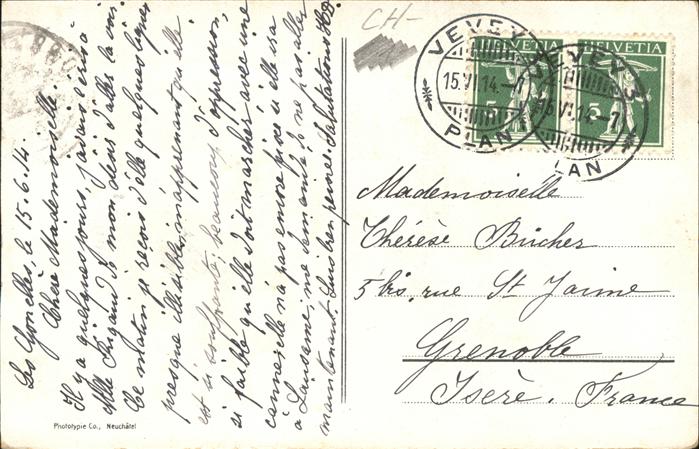 Les Gonelles, le 15.6.14.
Chère Mademoiselle.
Il y a quelques jours, j'avais écrit à
Mlle Rigaud de mon d'aller la voir
Ce matin je reçois d'elle quelques lignes
presque illisibles m'apprenant qu'elle
est si souffrante, beaucoup d'oppression,
si faible qu'elle doit marcher avec une
canne, elle n'a pas encore pu si elle ira
à Lausanne, me demande de ne pas aller
maintenant. Suis bien peinée. Salutations
Phototypie Co., Neuchâtel
CH-
VEVEY
15.VI.14.-7
PLAN
HELVETIA
5
HELVETIA
5
VEVEY
15.VI.14.-7
PLAN
Mademoiselle
Thérèse Bücher
5 bis, rue St Jaime
Grenoble
Isère. France